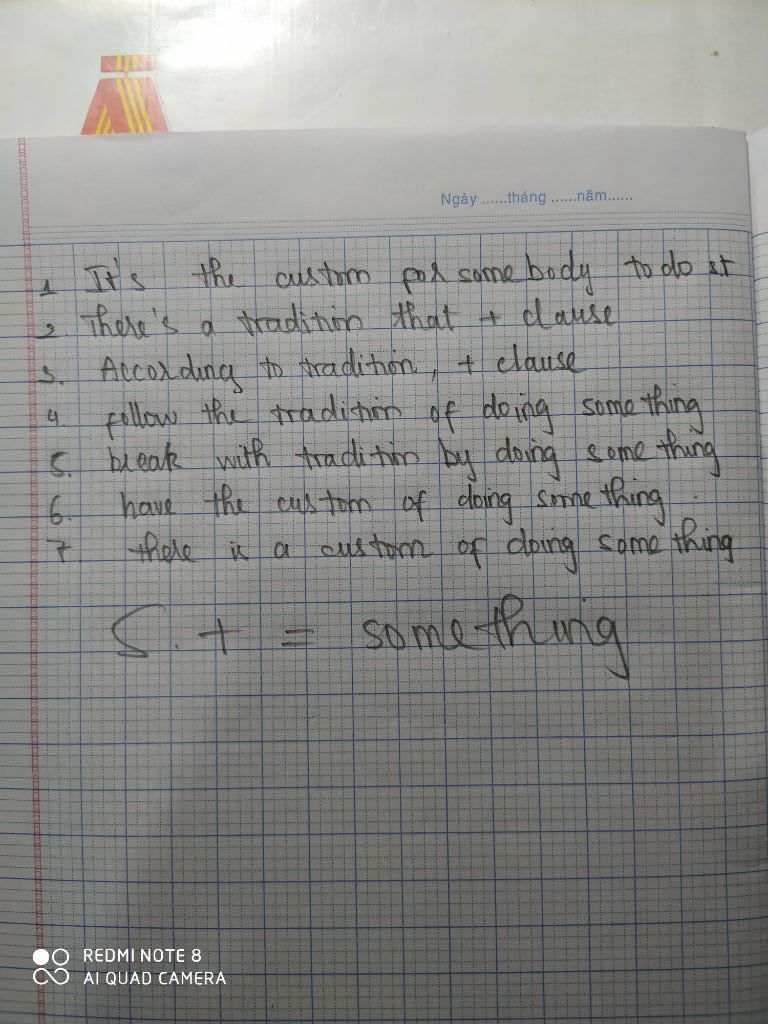 Ngày ......tháng ......năm......
1 It's the custom for somebody to do st
2 There's a tradition that + clause
3. According to tradition, + clause
4 follow the tradition of doing something
5. break with tradition by doing something
6. have the custom of doing something.
7 there is a custom of doing something
S.t = something
REDMI NOTE 8
AI QUAD CAMERA